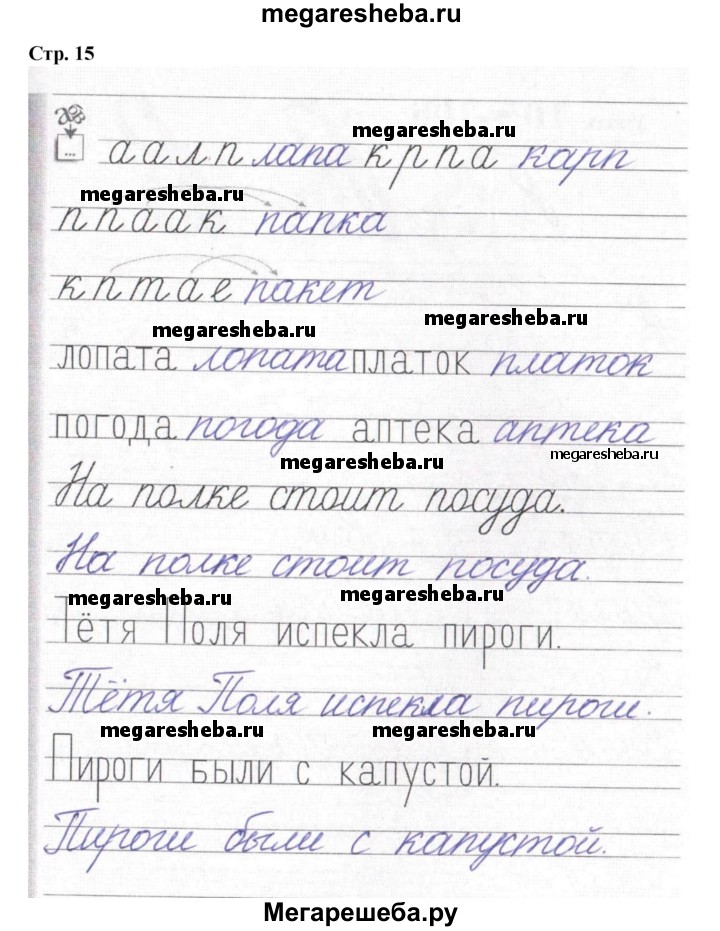 megaresheba.ru
Стр. 15
ав
...
megaresheba.ru
а а л п лапа к р п а карп
megaresheba.ru
п п а а к папка
к п т а е пакет
megaresheba.ru megaresheba.ru
лопата лопата платок платок
погода погода аптека аптека
megaresheba.ru megaresheba.ru
На полке стоит посуда.
На полке стоит посуда.
megaresheba.ru megaresheba.ru
Тётя Поля испекла пироги.
Тётя Поля испекла пироги.
megaresheba.ru megaresheba.ru
Пироги были с капустой.
Пироги были с капустой.
Мегарешеба.ру